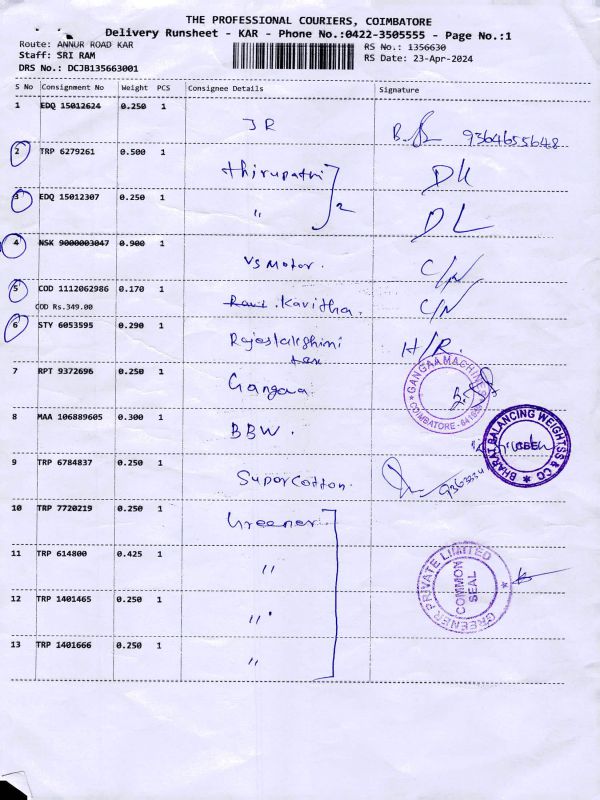 THE PROFESSIONAL COURIERS, COIMBATORE
Delivery Runsheet - KAR - Phone No.:0422-3505555 - Page No.:1
Route: ANNUR ROAD KAR
RS No.: 1356630
Staff: SRI RAM
RS Date: 23-Apr-2024
DRS No.: DCJB135663001
S No Consignment No Weight PCS Consignee Details Signature
1 EDQ 15012624 0.250 1 JR 9364655648
2 TRP 6279261 0.500 1 thirupathi DL
3 EDQ 15012307 0.250 1 " 2 DL
4 NSK 9000003047 0.900 1 VS Motor. C/N
5 COD 1112062986 0.170 1 Ravi. Kavitha. C/N
COD Rs.349.00
6 STY 6053595 0.290 1 Rajeslakshimi H/R.
7 RPT 9372696 0.250 1 Gangaa
GANGAA MACHINES
COIMBATORE
8 MAA 106889605 0.300 1 BBW.
BHARAT BALANCING WEIGHTSS & CO
CBE
9 TRP 6784837 0.250 1 Supercotton.
10 TRP 7720219 0.250 1 Greener
11 TRP 614800 0.425 1 "
GREENER PRIVATE LIMITED
COMMON SEAL
12 TRP 1401465 0.250 1 "
13 TRP 1401666 0.250 1 "